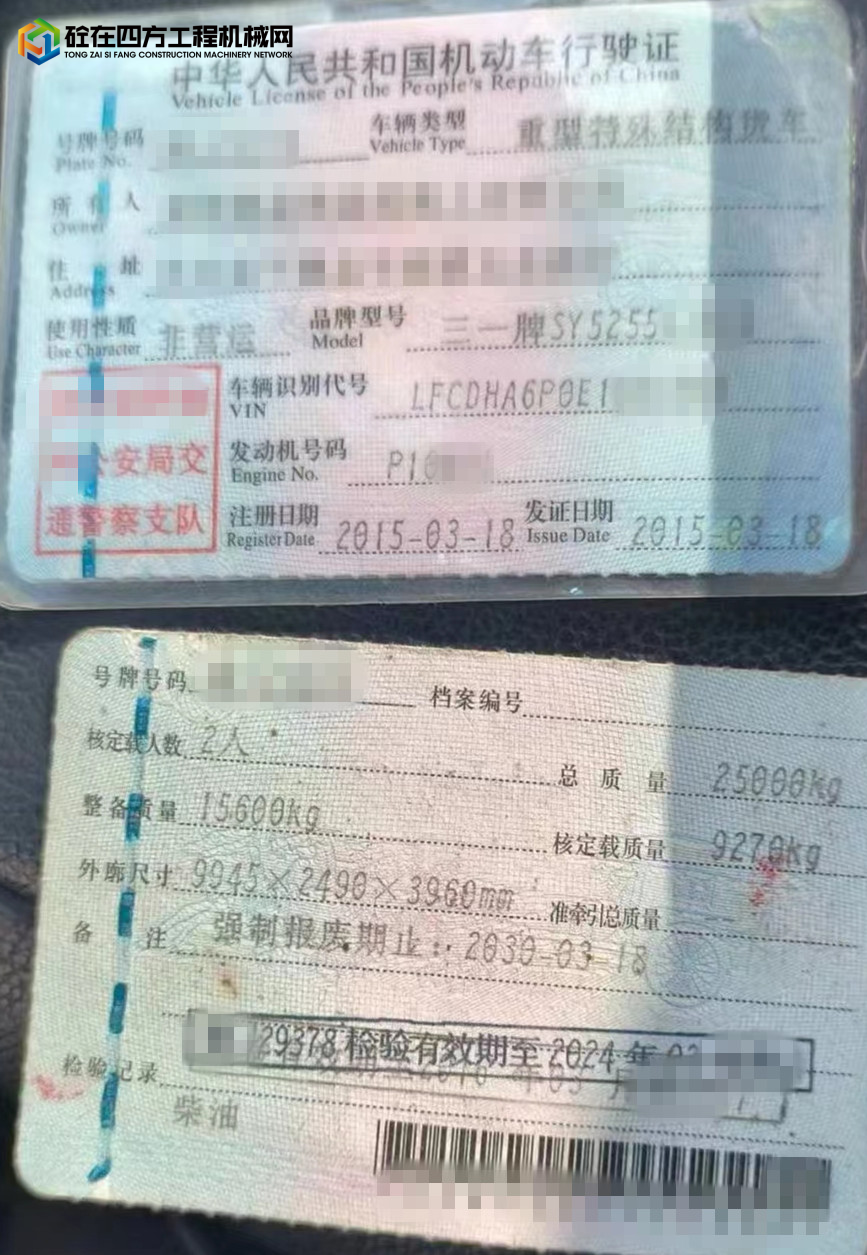 砼在四方工程机械网
TONG ZAI SI FANG CONSTRUCTION MACHINERY NETWORK
中华人民共和国机动车行驶证
Vehicle License of the People's Republic of China
号牌号码
Plate No.
车辆类型 重型特殊结构货车
Vehicle Type
所有人
Owner
住址
Address
使用性质 非营运
Use Character
品牌型号 三一牌SY5255
Model
车辆识别代号 LFCDHA6P0E1
VIN
公安局交
通警察支队
发动机号码 P10
Engine No.
注册日期 2015-03-18
Register Date
发证日期 2015-03-18
Issue Date
号牌号码
档案编号
核定载人数 2人
总质量 25000kg
整备质量 15600kg
核定载质量 9270kg
外廓尺寸 9945×2490×3960mm
准牵引总质量 --
备注 强制报废期止:2030-03-18
29378 检验有效期至2024年03
检验记录
柴油